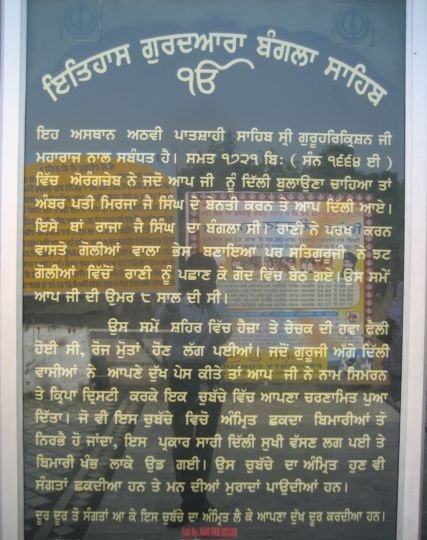 ਇਤਿਹਾਸ ਗੁਰਦਆਰਾ ਬੰਗਲਾ ਸਾਹਿਬ
ੴ
ਇਹ ਅਸਥਾਨ ਅਠਵੀ ਪਾਤਸ਼ਾਹੀ ਸਾਹਿਬ ਸ੍ਰੀ ਗੁਰੂਹਰਿਕ੍ਰਿਸ਼ਨ ਜੀ
ਮਹਾਰਾਜ ਨਾਲ ਸਬੰਧਤ ਹੈ। ਸਮਤ ੧੭੨੧ ਬਿ: ( ਸੰਨ ੧੬੬੪ ਈ )
ਵਿਚ ਔਰੰਗਜ਼ੇਬ ਨੇ ਜਦੋਂ ਆਪ ਜੀ ਨੂੰ ਦਿੱਲੀ ਬੁਲਾਉਣਾ ਚਾਹਿਆ ਤਾਂ
ਅੰਬਰ ਪਤੀ ਮਿਰਜਾ ਜੈ ਸਿੰਘ ਦੇ ਬੇਨਤੀ ਕਰਨ ਤੇ ਆਪ ਦਿੱਲੀ ਆਏ।
ਇਸੇ ਥਾਂ ਰਾਜਾ ਜੈ ਸਿੰਘ ਦਾ ਬੰਗਲਾ ਸੀ। ਰਾਣੀ ਨੇ ਪਰਖ ਕਰਨ
ਵਾਸਤੇ ਗੋਲੀਆਂ ਵਾਲਾ ਭੇਸ ਬਣਾਇਆ ਪਰ ਸਤਿਗੁਰੂਜੀ ਨੇ ਝਟ
ਗੋਲੀਆਂ ਵਿੱਚੋਂ ਰਾਣੀ ਨੂੰ ਪਛਾਣ ਕੇ ਗੋਦ ਵਿੱਚ ਬੈਠ ਗਏ। ਉਸ ਸਮੇਂ
ਆਪ ਜੀ ਦੀ ਉਮਰ ੮ ਸਾਲ ਦੀ ਸੀ।
ਉਸ ਸਮੇਂ ਸ਼ਹਿਰ ਵਿੱਚ ਹੈਜ਼ਾ ਤੇ ਚੇਚਕ ਦੀ ਹਵਾ ਫੈਲੀ
ਹੋਈ ਸੀ, ਰੋਜ ਮੁੱਤਾਂ ਹੋਣ ਲੱਗ ਪਈਆਂ। ਜਦੋਂ ਗੁਰੂਜੀ ਅੱਗੇ ਦਿਲੀ
ਵਾਸੀਆਂ ਨੇ ਆਪਣੇ ਦੁੱਖ ਪੇਸ ਕੀਤੇ ਤਾਂ ਆਪ ਜੀ ਨੇ ਨਾਮ ਸਿਮਰਨ
ਤੇ ਕ੍ਰਿਪਾ ਦ੍ਰਿਸਟੀ ਕਰਕੇ ਇਕ ਚੁਬੱਚੇ ਵਿੱਚ ਆਪਣਾ ਚਰਣਾਮਿਤ ਪੁਆ
ਦਿੱਤਾ। ਜੋ ਵੀ ਇਸ ਚੁਬੱਚੇ ਵਿਚੋ ਅੰਮ੍ਰਿਤ ਛਕਦਾ ਬਿਮਾਰੀਆਂ ਤੋਂ
ਨਿਰਭੈ ਹੋ ਜਾਂਦਾ, ਇਸ ਪ੍ਰਕਾਰ ਸਾਰੀ ਦਿੱਲੀ ਸੁਖੀ ਵੱਸਣ ਲਗ ਪਈ ਤੇ
ਬਿਮਾਰੀ ਖੰਭ ਲਾਕੇ ਉਡ ਗਈ। ਉਸ ਚੁਬੱਚੇ ਦਾ ਅੰਮ੍ਰਿਤ ਹੁਣ ਵੀ
ਸੰਗਤਾਂ ਛਕਦੀਆ ਹਨ ਤੇ ਮਨ ਦੀਆਂ ਮੁਰਾਦਾਂ ਪਾਉਦੀਆਂ ਹਨ।
ਦੂਰ ਦੂਰ ਤੋ ਸੰਗਤਾਂ ਆ ਕੇ ਇਸ ਚੁਬੱਚੇ ਦਾ ਅੰਮ੍ਰਿਤ ਲੈ ਕੇ ਆਪਣਾ ਦੁੱਖ ਦੂਰ ਕਰਦੀਆ ਹਨ।